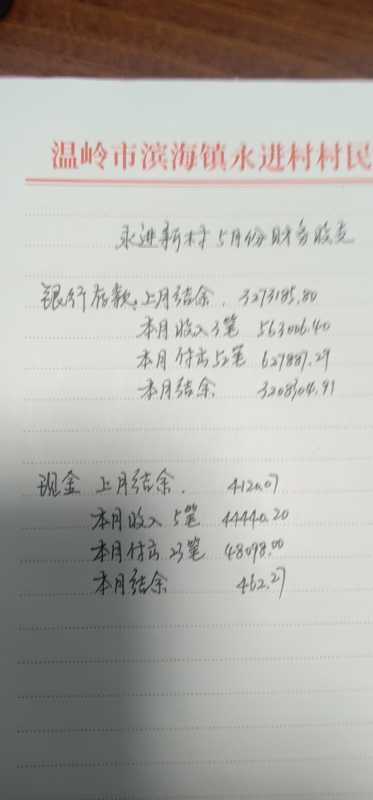 温岭市滨海镇永进村村民
永进新村5月份财务收支
银行存款:上月结余. 3273185.80
本月收入3笔 563006.40
本月付出52笔 627887.29
本月结余 3208304.91
现金 上月结余. 4120.07
本月收入 5笔 44440.20
本月付出 23笔 48098.00
本月结余 462.27